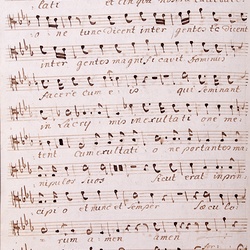 lati et lingua nostra exultati
o ne tunc dicent inter gentes dicent
inter gentes magnificavit Dominus
facere cum e is qui seminant
in lacry mis in exultati one me,
tent cum exultati o ne portantes ma,
nipulos suos Sicut erat in prin,
cipi o et nunc et semper saeculo
rum a men amen